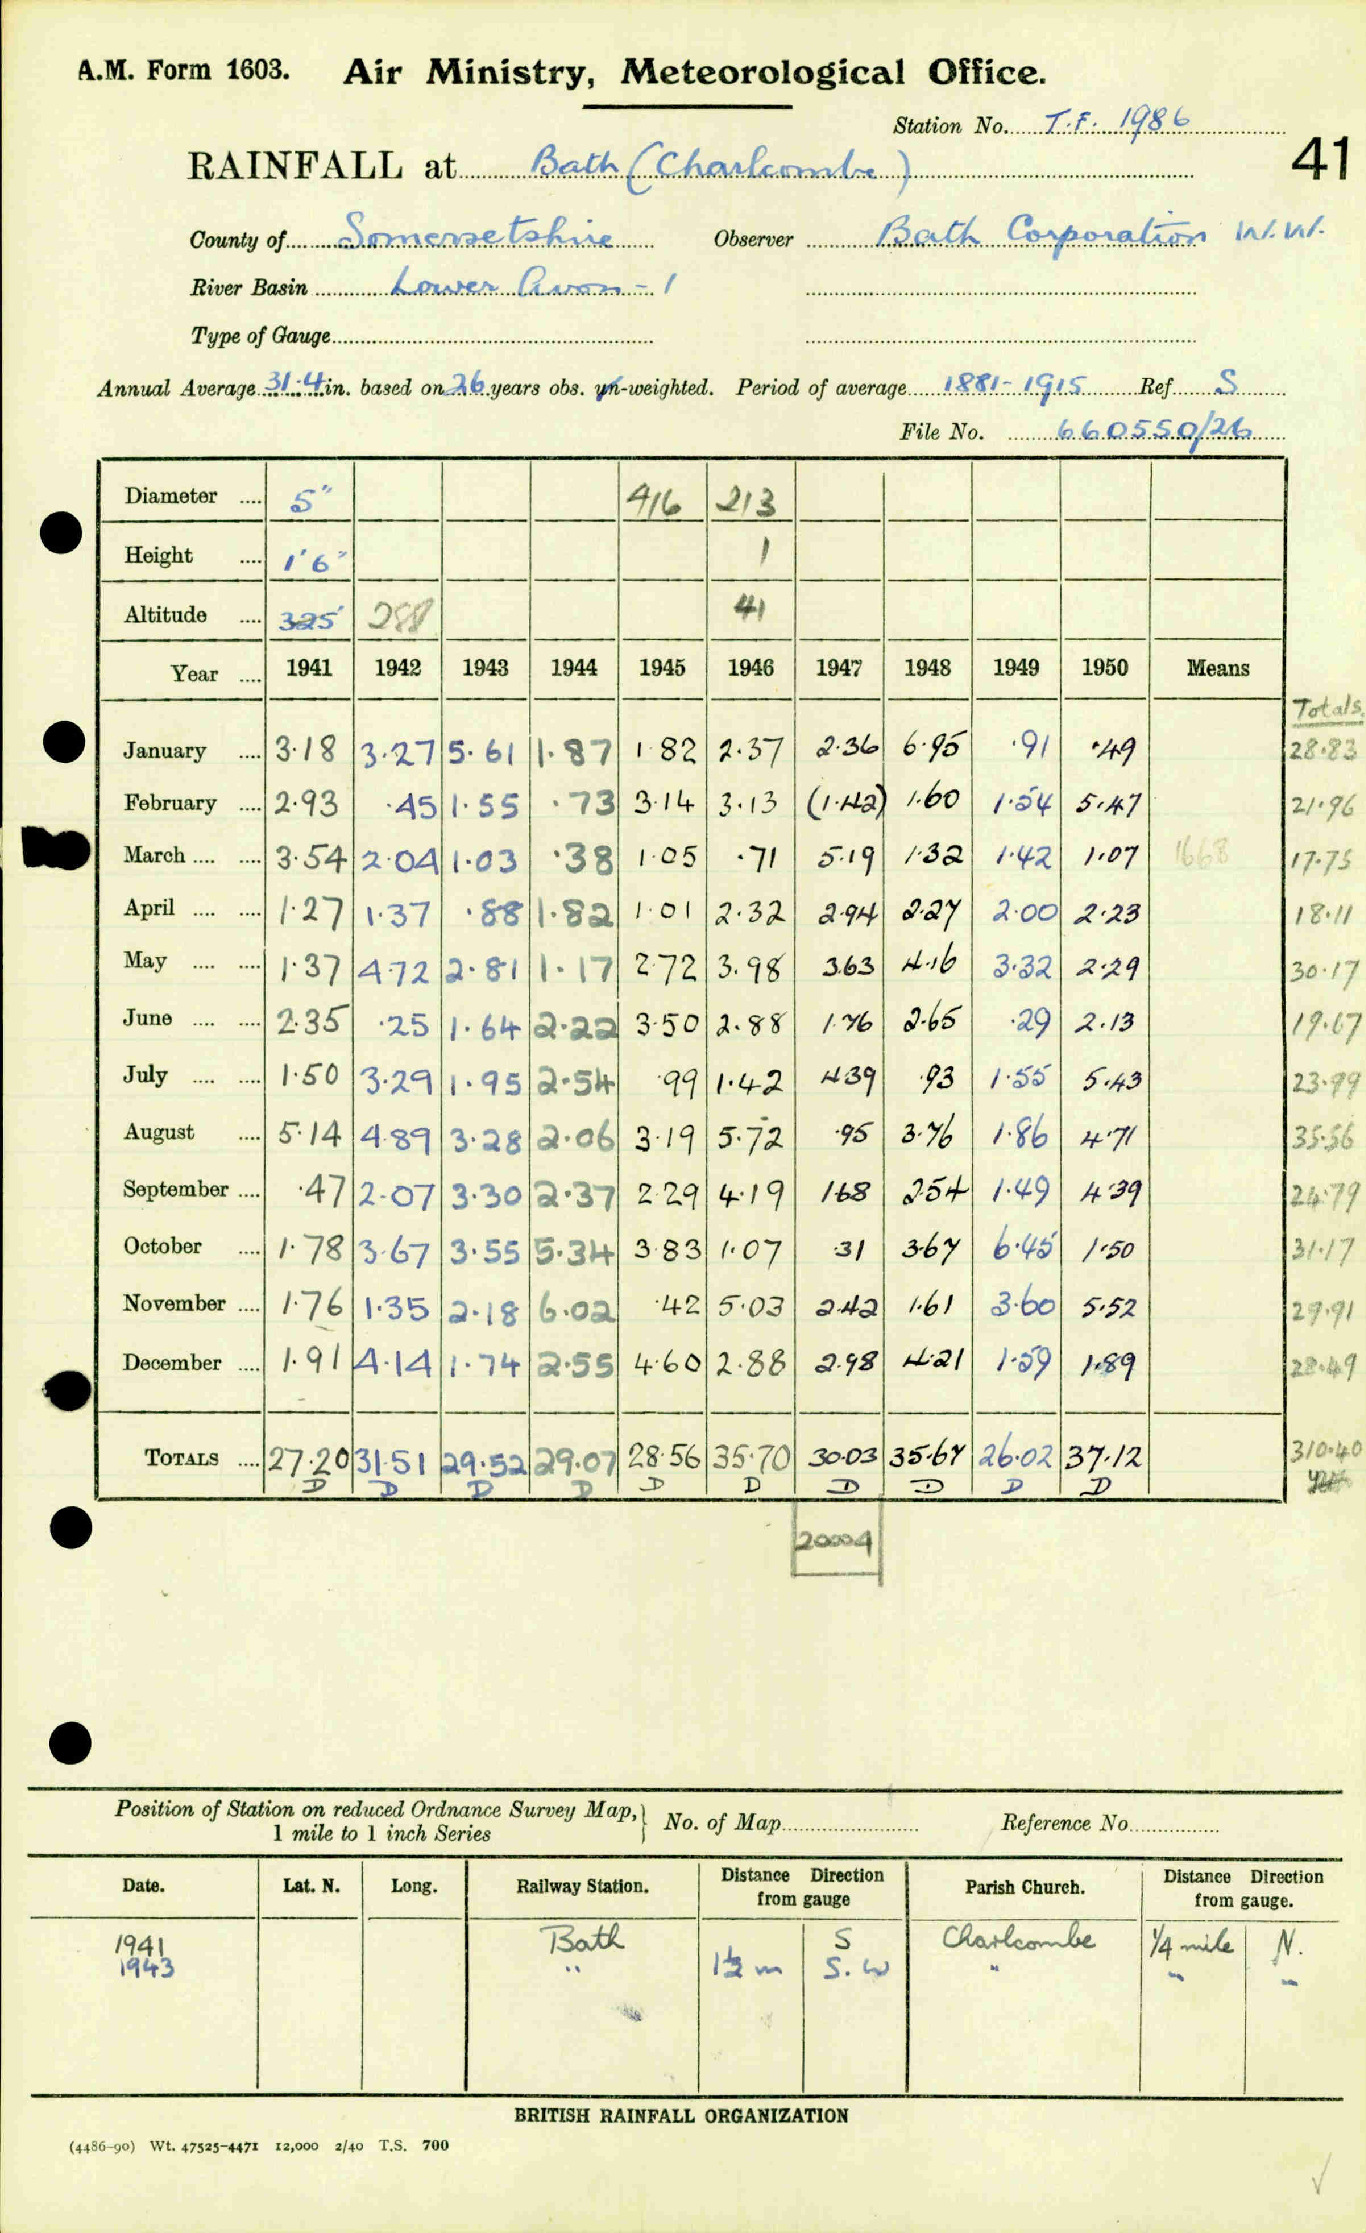 A.M. Form 1603. Air Ministry, Meteorological Office.
Station No. T.F. 1986
41
RAINFALL at Bath (Charlcombe)
County of Somersetshire Observer Bath Corporation W.W.
River Basin Lower Avon - 1
Type of Gauge
Annual Average 31.4 in. based on 26 years obs. un-weighted. Period of average 1881-1915 Ref S
File No. 660550/26
Diameter 5" 416 213
Height 1'6" 1
Altitude 325' 288 41
Year 1941 1942 1943 1944 1945 1946 1947 1948 1949 1950 Means
Totals.
January 3.18 3.27 5.61 1.87 1.82 2.37 2.36 6.95 .91 .49 28.83
February 2.93 .45 1.55 .73 3.14 3.13 (1.42) 1.60 1.54 5.47 21.96
March 3.54 2.04 1.03 .38 1.05 .71 5.19 1.32 1.42 1.07 1668 17.75
April 1.27 1.37 .88 1.82 1.01 2.32 2.94 2.27 2.00 2.23 18.11
May 1.37 4.72 2.81 1.17 2.72 3.98 3.63 4.16 3.32 2.29 30.17
June 2.35 .25 1.64 2.22 3.50 2.88 1.76 2.65 .29 2.13 19.67
July 1.50 3.29 1.95 2.54 .99 1.42 4.39 .93 1.55 5.43 23.99
August 5.14 4.89 3.28 2.06 3.19 5.72 .95 3.76 1.86 4.71 35.56
September .47 2.07 3.30 2.37 2.29 4.19 1.68 2.54 1.49 4.39 24.79
October 1.78 3.67 3.55 5.34 3.83 1.07 .31 3.67 6.45 1.50 31.17
November 1.76 1.35 2.18 6.02 .42 5.03 2.42 1.61 3.60 5.52 29.91
December 1.91 4.14 1.74 2.55 4.60 2.88 2.98 4.21 1.59 1.89 28.49
TOTALS 27.20 31.51 29.52 29.07 28.56 35.70 30.03 35.67 26.02 37.12 310.40
D D D D D D D D D D
20004
Position of Station on reduced Ordnance Survey Map, 1 mile to 1 inch Series No. of Map Reference No.
Date. Lat. N. Long. Railway Station. Distance Direction from gauge Parish Church. Distance Direction from gauge.
1941 Bath S Charlcombe 1/4 mile N.
1943 " 1½ m S.W " " "
BRITISH RAINFALL ORGANIZATION
(4486-90) Wt. 47525-4471 12,000 2/40 T.S. 700